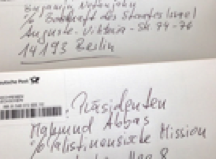 Benjamin Netanjahu
c/o Botschaft des Staates Israel
Auguste-Viktoria-Str. 74-76
14193 Berlin
Deutsche Post
Präsidenten
Mahmud Abbas
c/o Palästinensische Mission